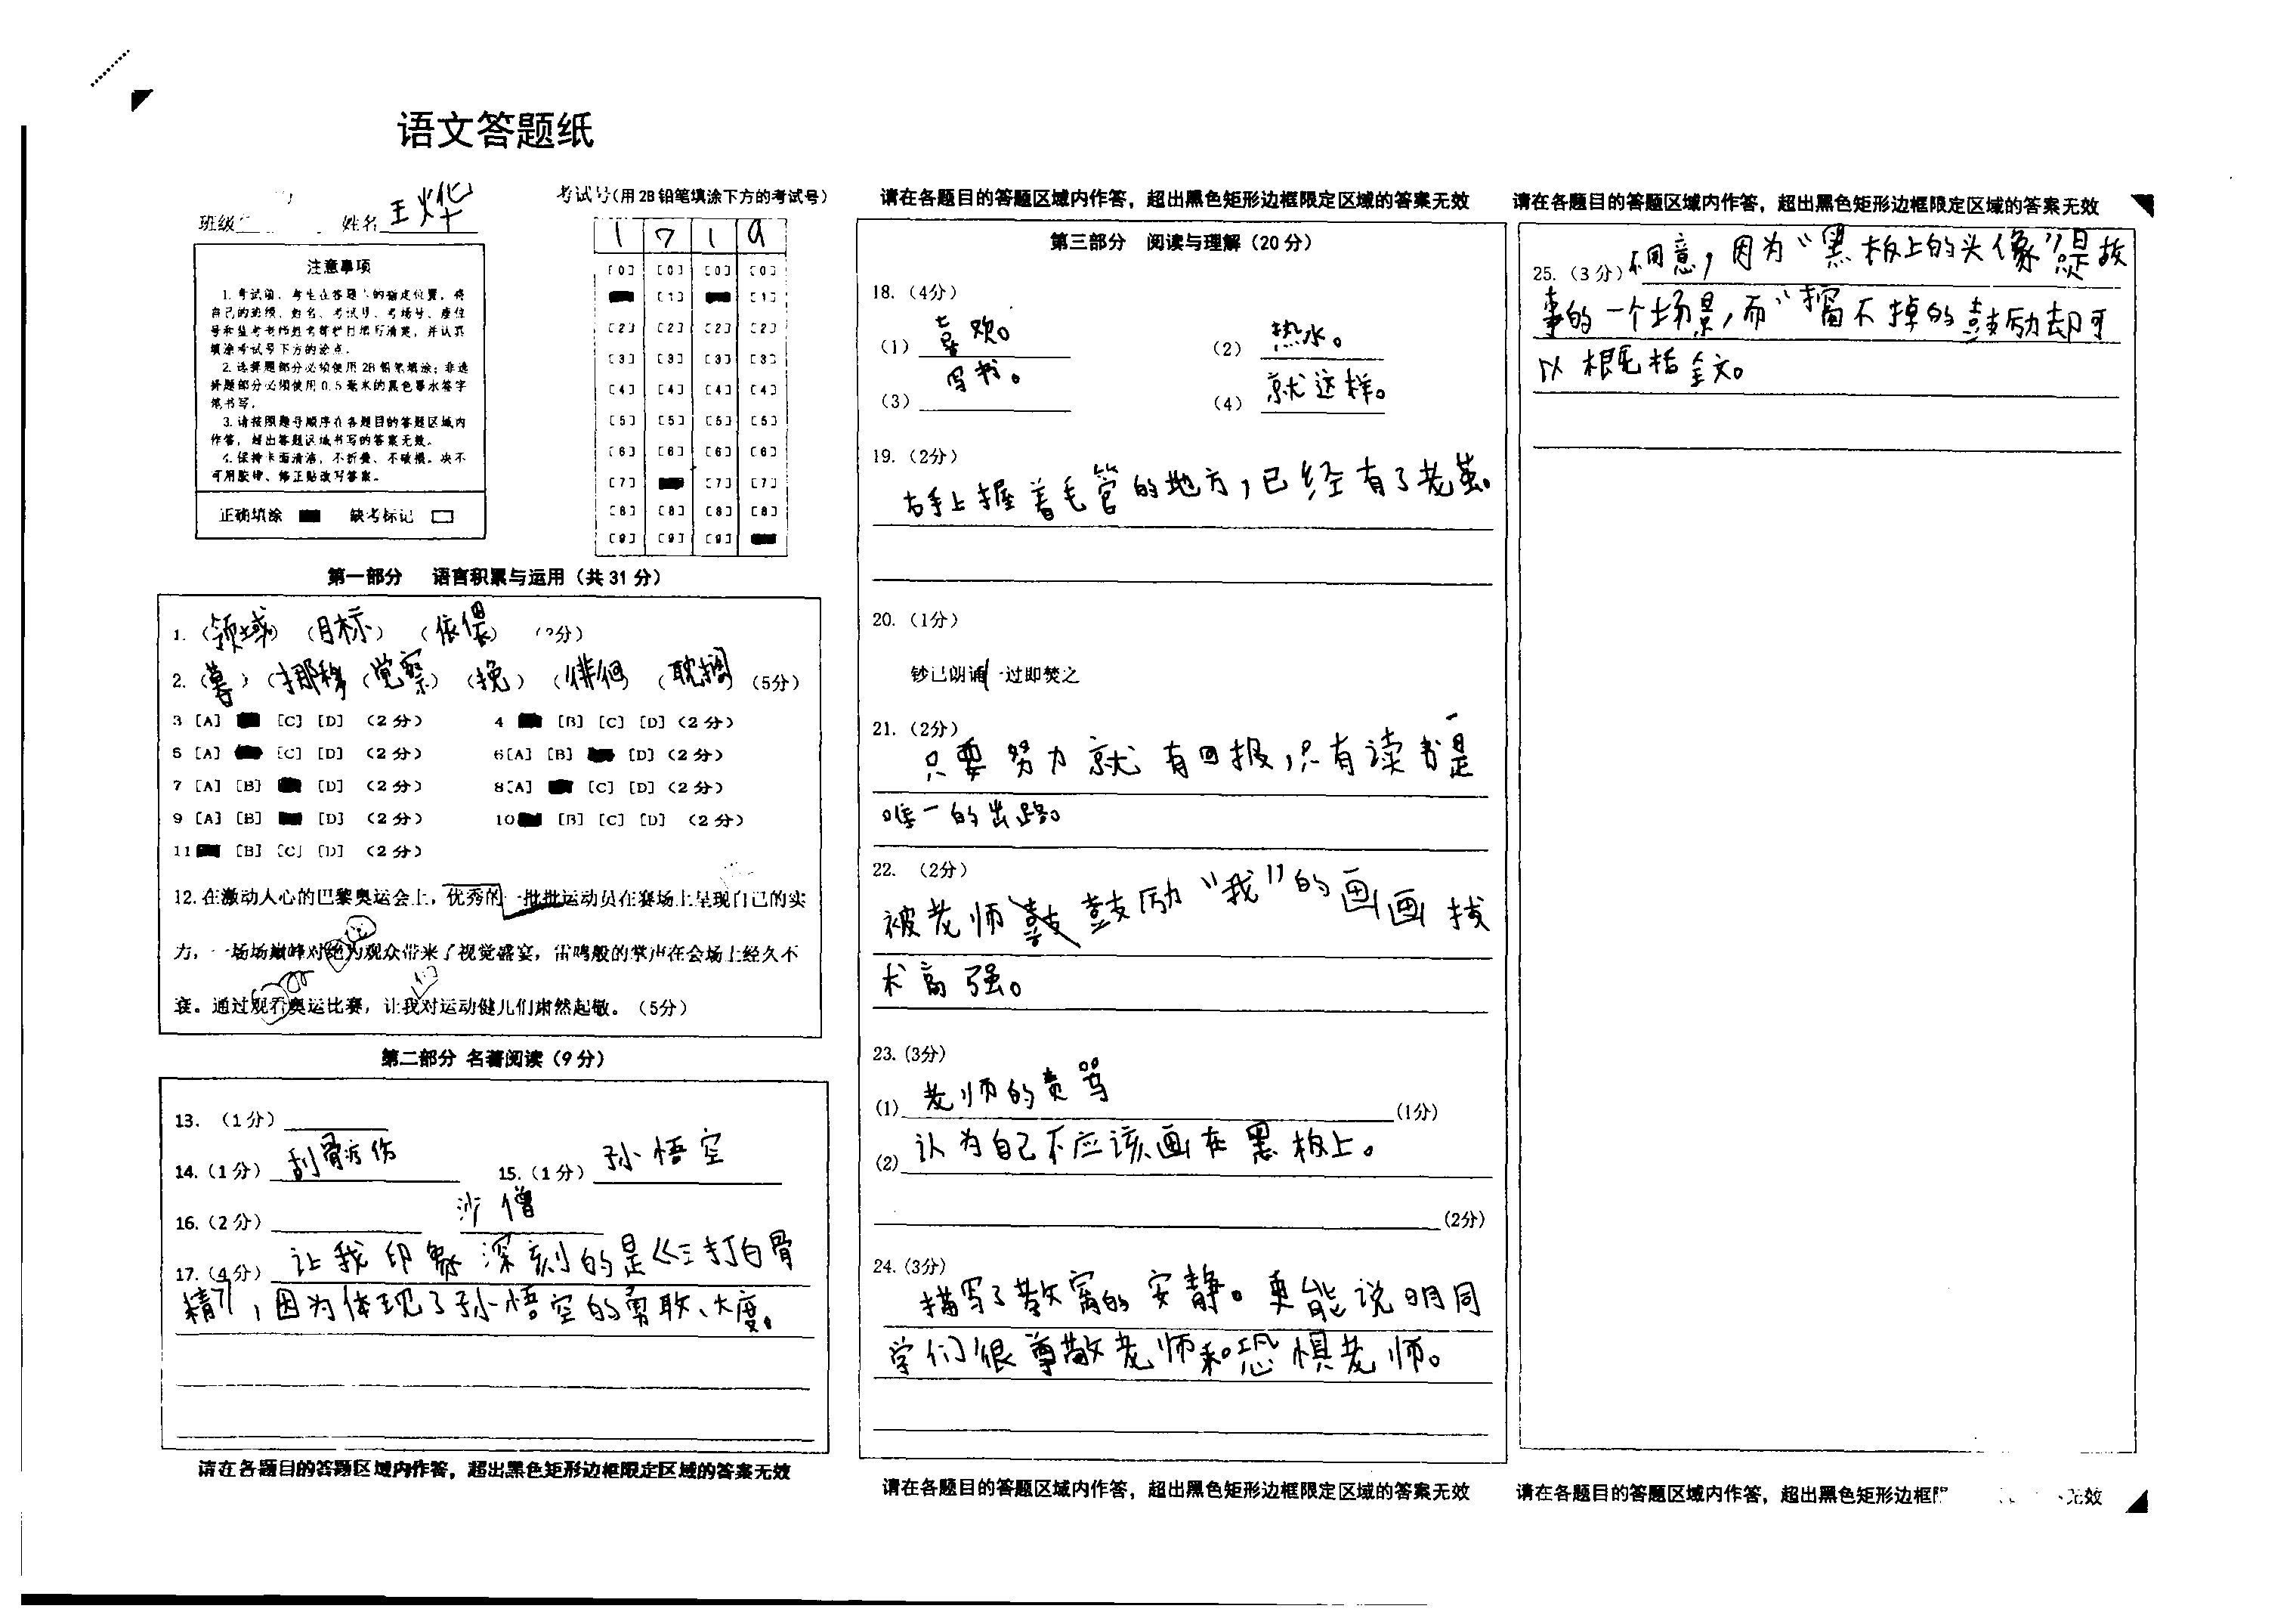 语文答题纸
班级 姓名 王烨
考试号(用2B铅笔填涂下方的考试号)
1 7 1 9
注意事项
1.考试前,考生在答题卡的指定位置,将
自己的班级、姓名、考试号、考场号、座位
号和监考老师姓名等栏目填写清楚,并认真
填涂考试号下方的涂点。
2.选择题部分必须使用2B铅笔填涂;非选
择题部分必须使用0.5毫米的黑色墨水签字
笔书写。
3.请按照题号顺序在各题目的答题区域内
作答,超出答题区域书写的答案无效。
4.保持卡面清洁,不折叠、不破损。决不
可用胶带、修正贴改写答案。
正确填涂 缺考标记
[0] [0] [0] [0]
[1] [1]
[2] [2] [2] [2]
[3] [3] [3] [3]
[4] [4] [4] [4]
[5] [5] [5] [5]
[6] [6] [6] [6]
[7] [7] [7]
[8] [8] [8] [8]
[9] [9] [9]
第一部分 语言积累与运用(共31分)
1.(领域)(目标)(依偎)
2.(暮)(挪移)(觉察)(挽)(徘徊)(耽搁)(5分)
3 [A] [C] [D] (2分) 4 [B] [C] [D] (2分)
5 [A] [C] [D] (2分) 6 [A] [B] [D] (2分)
7 [A] [B] [D] (2分) 8 [A] [C] [D] (2分)
9 [A] [B] [D] (2分) 10 [B] [C] [D] (2分)
11 [B] [C] [D] (2分)
12.在激动人心的巴黎奥运会上,优秀的一批批运动员在赛场上呈现自己的实
力,一场场巅峰对绝为观众带来了视觉盛宴,雷鸣般的掌声在会场上经久不
衰。通过观看奥运比赛,让我对运动健儿们肃然起敬。(5分)
第二部分 名著阅读(9分)
13.(1分)
14.(1分) 刮骨疗伤 15.(1分) 孙悟空
16.(2分) 沙僧
17.(4分) 让我印象深刻的是《三打白骨
精》,因为体现了孙悟空的勇敢、大度。
请在各题目的答题区域内作答,超出黑色矩形边框限定区域的答案无效
请在各题目的答题区域内作答,超出黑色矩形边框限定区域的答案无效
第三部分 阅读与理解(20分)
18.(4分)
(1) 喜欢。 (2) 热水。
(3) 写书。 (4) 就这样。
19.(2分)
右手上握着毛管的地方,已经有了老茧。
20.(1分)
钞已朗诵一过即焚之
21.(2分)
只要努力就有回报,只有读书是
唯一的出路。
22.(2分)
被老师鼓励“我”的画画技
术高强。
23.(3分)
(1) 老师的责骂 (1分)
(2) 认为自己不应该画在黑板上。
(2分)
24.(3分)
描写了教室的安静。更能说明同
学们很尊敬老师和恐惧老师。
请在各题目的答题区域内作答,超出黑色矩形边框限定区域的答案无效
请在各题目的答题区域内作答,超出黑色矩形边框限定区域的答案无效
25.(3分) 不同意,因为“黑板上的头像”是故
事的一个场景,而“擦不掉的鼓励却可
以概括全文。
请在各题目的答题区域内作答,超出黑色矩形边框 无效